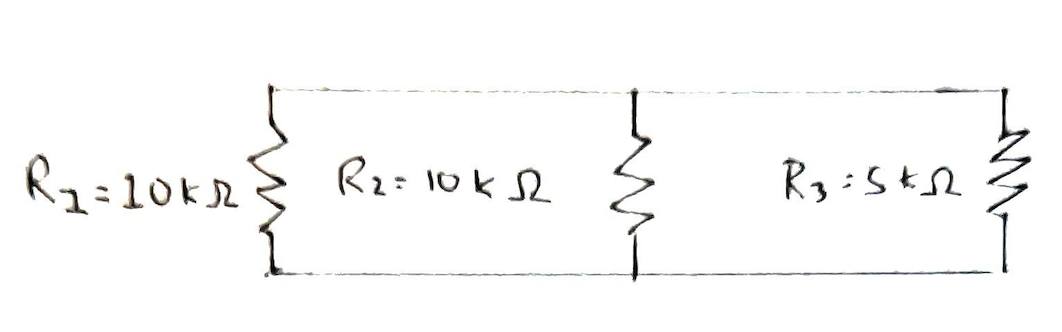 R1=10kΩ
R2=10kΩ
R3=5kΩ